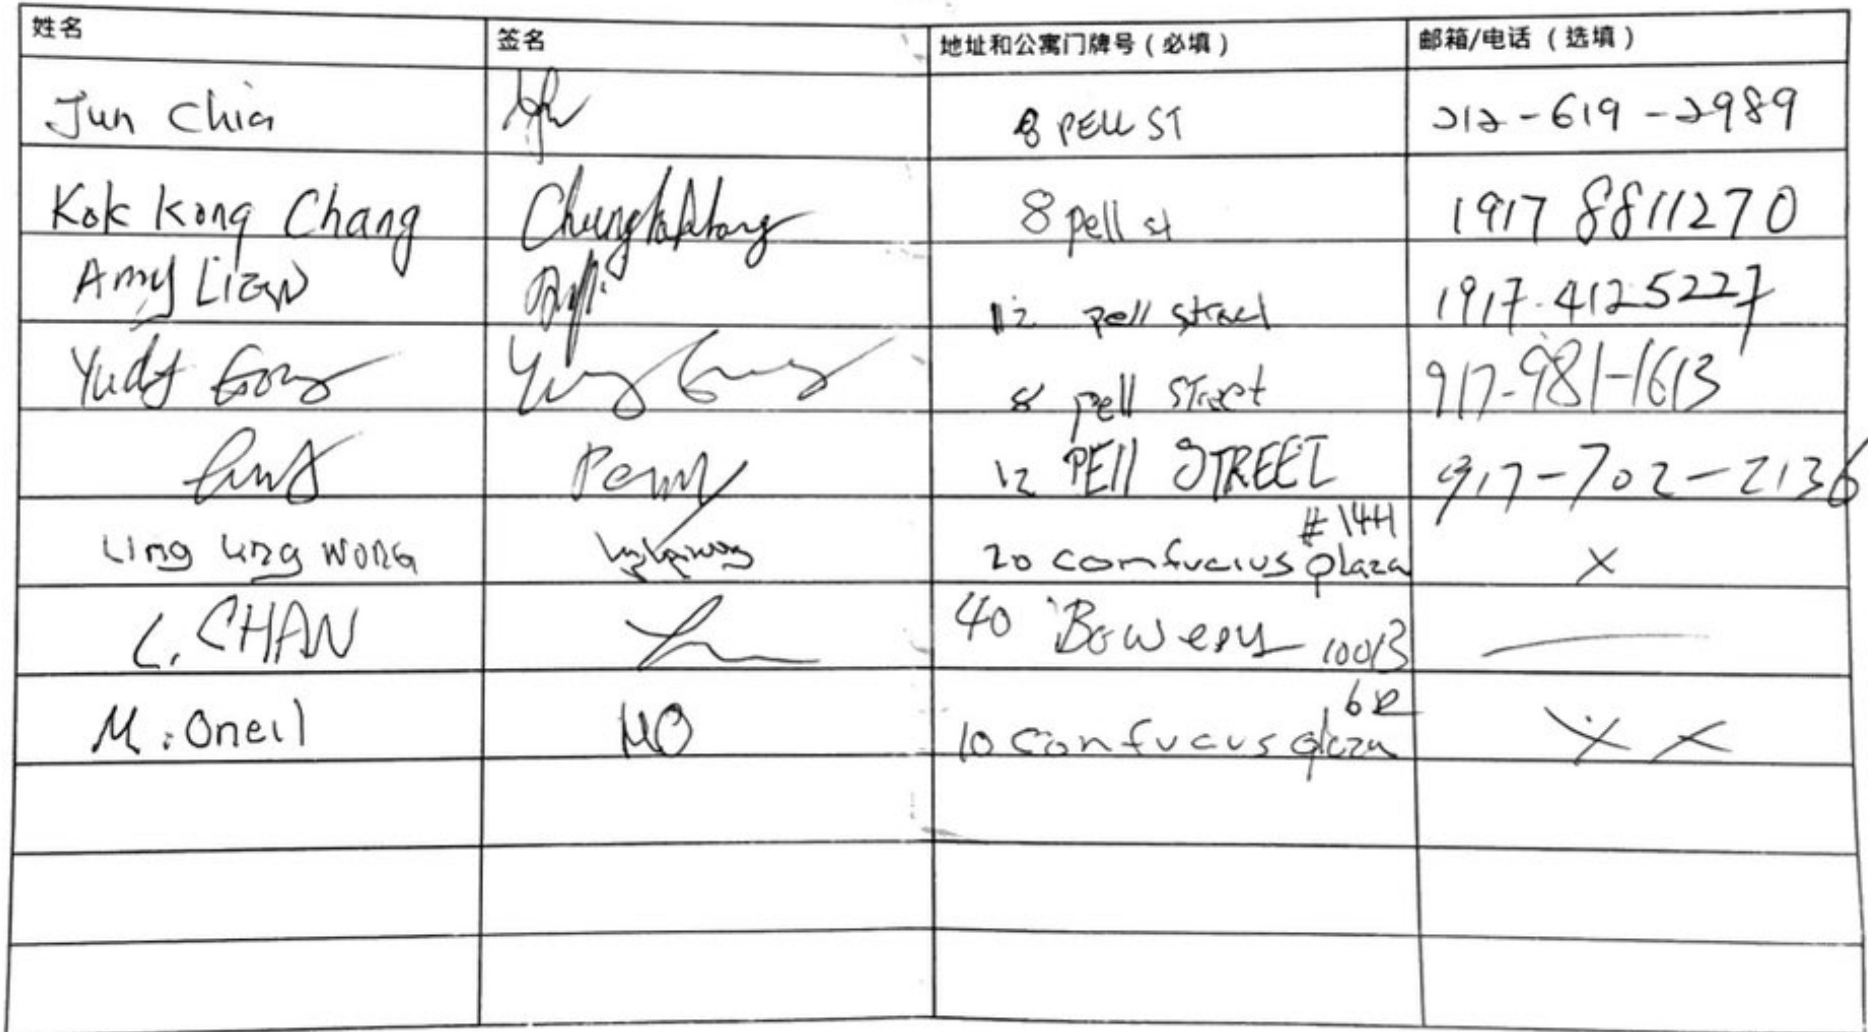 姓名 签名 地址和公寓门牌号(必填) 邮箱/电话(选填)
Jun Chia 8 PELL ST 212-619-2989
Kok Kong Chang 8 pell st 1917 8811270
Amy Liew 12 pell street 1917.412 5227
Yudy 8 pell street 917-981-1613
Penny 12 PEll STREET 917-702-2136
#14H
Ling Ling Wong 20 comfucius plaza X
L. CHAN 40 Bowery 10013
M. Oneil MO 10 confucus plaza X X